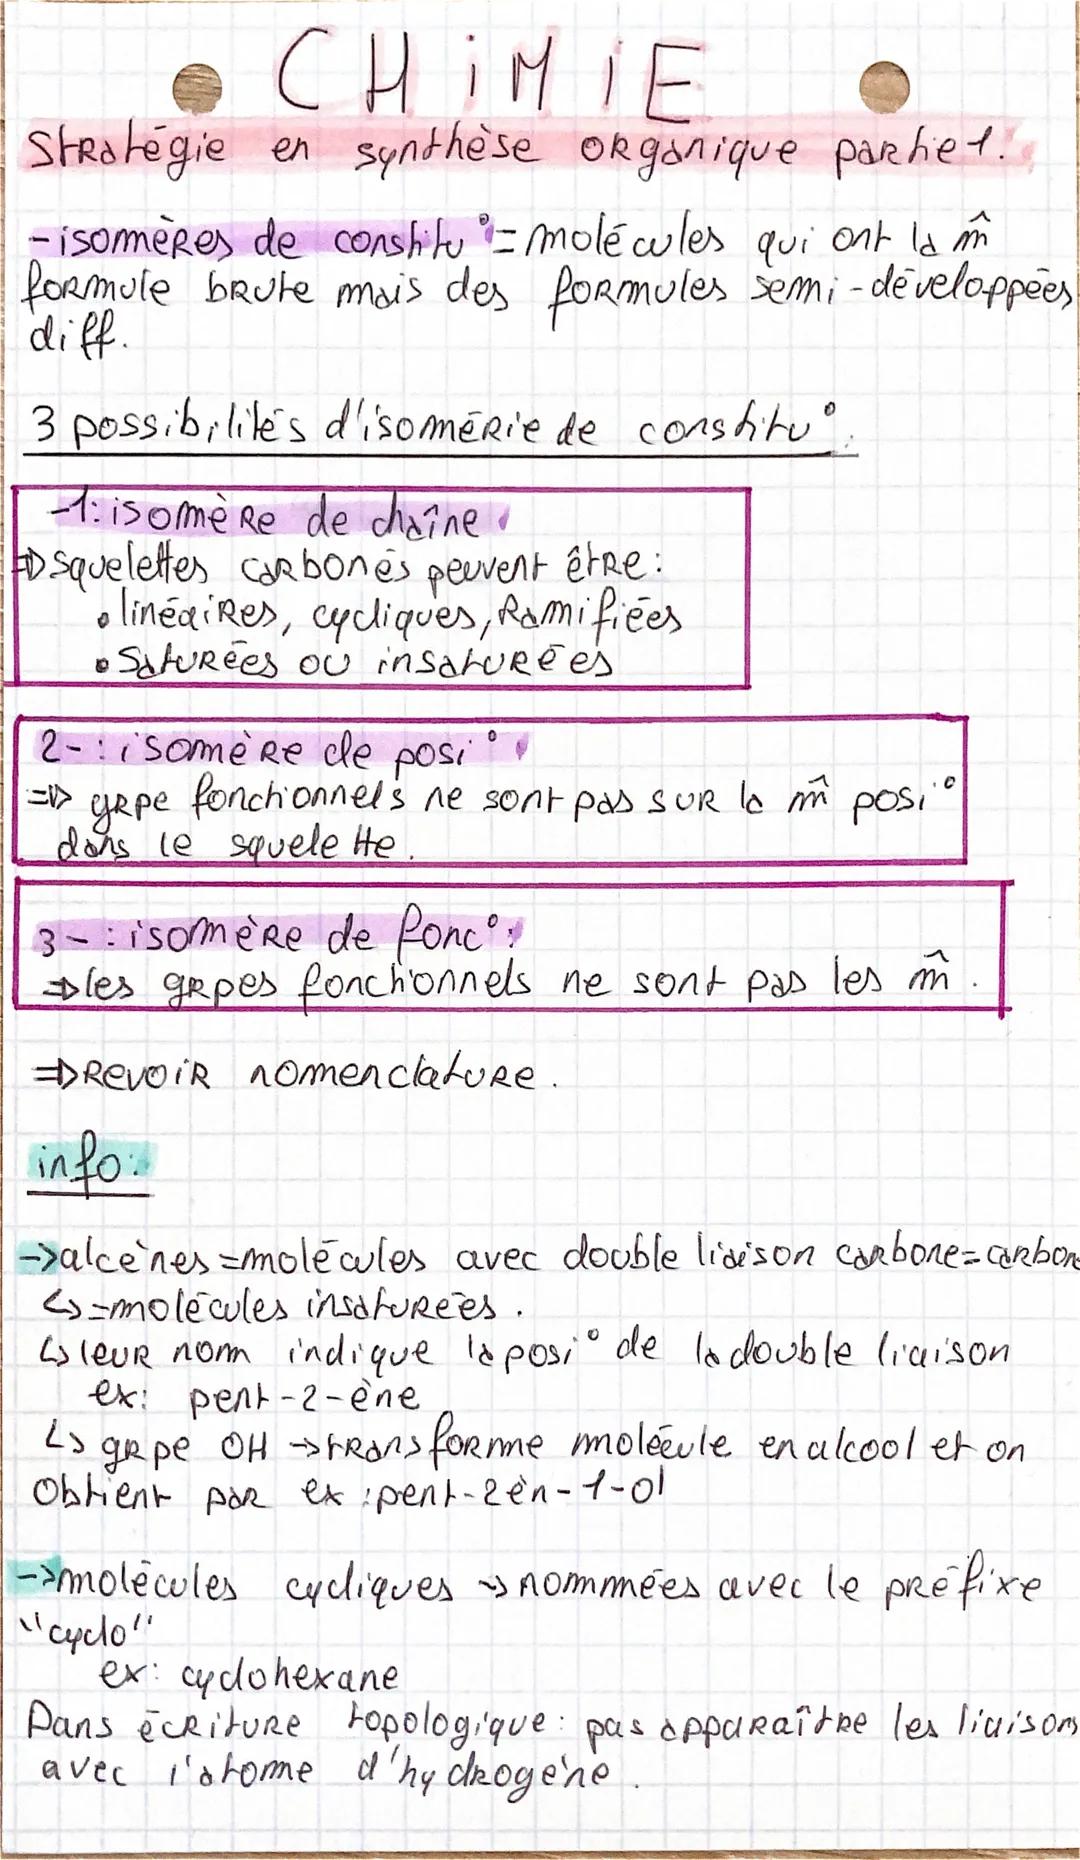 CHiMiE
Stratégie en synthèse organique partie 1.
- isomères de constitu° = molécules qui ont la m̂
formule brute mais des formules semi-développées
diff.
3 possibilités d'isomérie de constitu°.
-1: isomère de chaîne
=> squelettes carbonés peuvent être :
• linéaires, cycliques, Ramifiées
• Saturées ou insaturées
2-: isomère de posi°
=> grpe fonctionnels ne sont pas sur la m̂ posi°
dans le squelette.
3-: isomère de fonc° :
=> les grpes fonctionnels ne sont pas les m̂.
=> Revoir nomenclature.
info:
-> alcènes = molécules avec double liaison carbone=carbone
↳ = molécules insaturées.
↳ leur nom indique la posi° de la double liaison
ex: pent-2-ène
↳ grpe OH → transforme molécule en alcool et on
Obtient par ex : pent-2èn-1-ol
-> molécules cycliques → nommées avec le préfixe
"cyclo"
ex: cyclohexane
Dans écriture topologique : pas apparaître les liaisons
avec l'atome d'hydrogène.